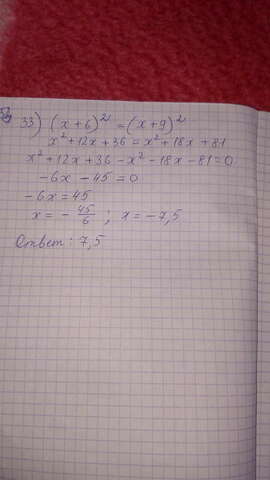 33) (x+6)² = (x+9)²
x²+12x+36 = x²+18x+81
x²+12x+36-x²-18x-81=0
-6x -45 =0
-6x =45
x= - 45/6 ; x=-7,5
Ответ: 7,5